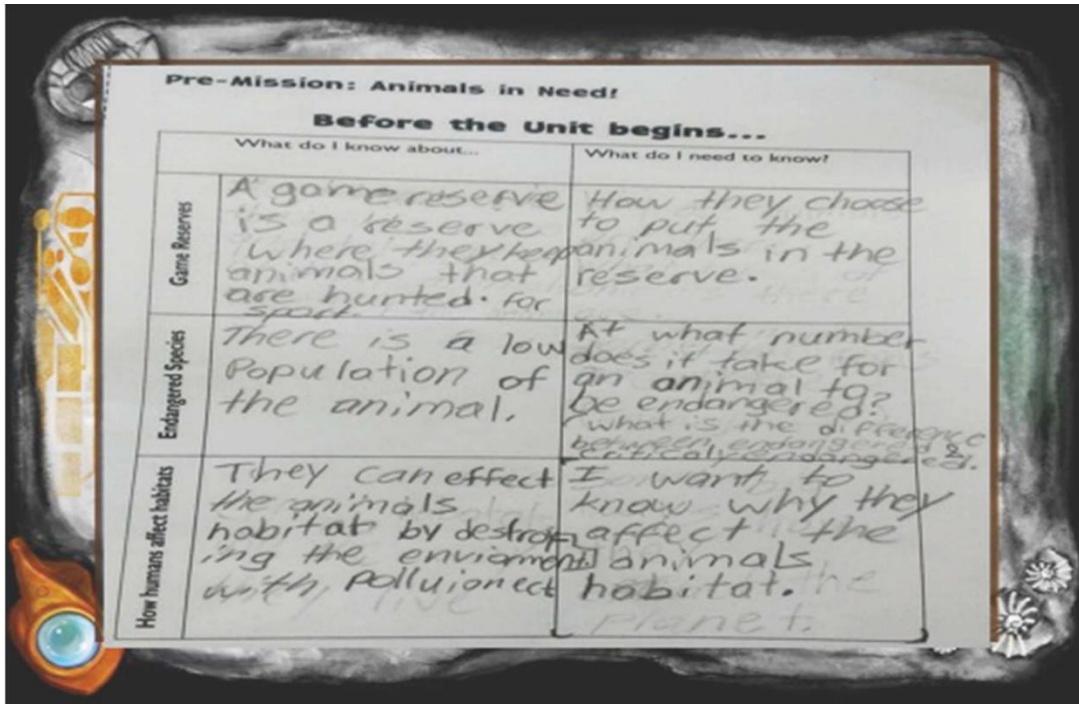 Pre-Mission: Animals in Need!
Before the Unit begins...
What do I know about...
What do I need to know?
Game Reserves
A game reserve
is a reserve
where they keep
animals that
are hunted. For
sport.
How they choose
to put the
animals in the
reserve.
Endangered Species
There is a low
Population of
the animal.
At what number
does it take for
an animal to?
be endangered?
what is the difference
between endangered &
critically endangered.
How humans affect habitats
They can effect
the animals
habitat by destroy
ing the enviorment
with, Polluionect
I want to
know why they
affect the
animals
habitat.